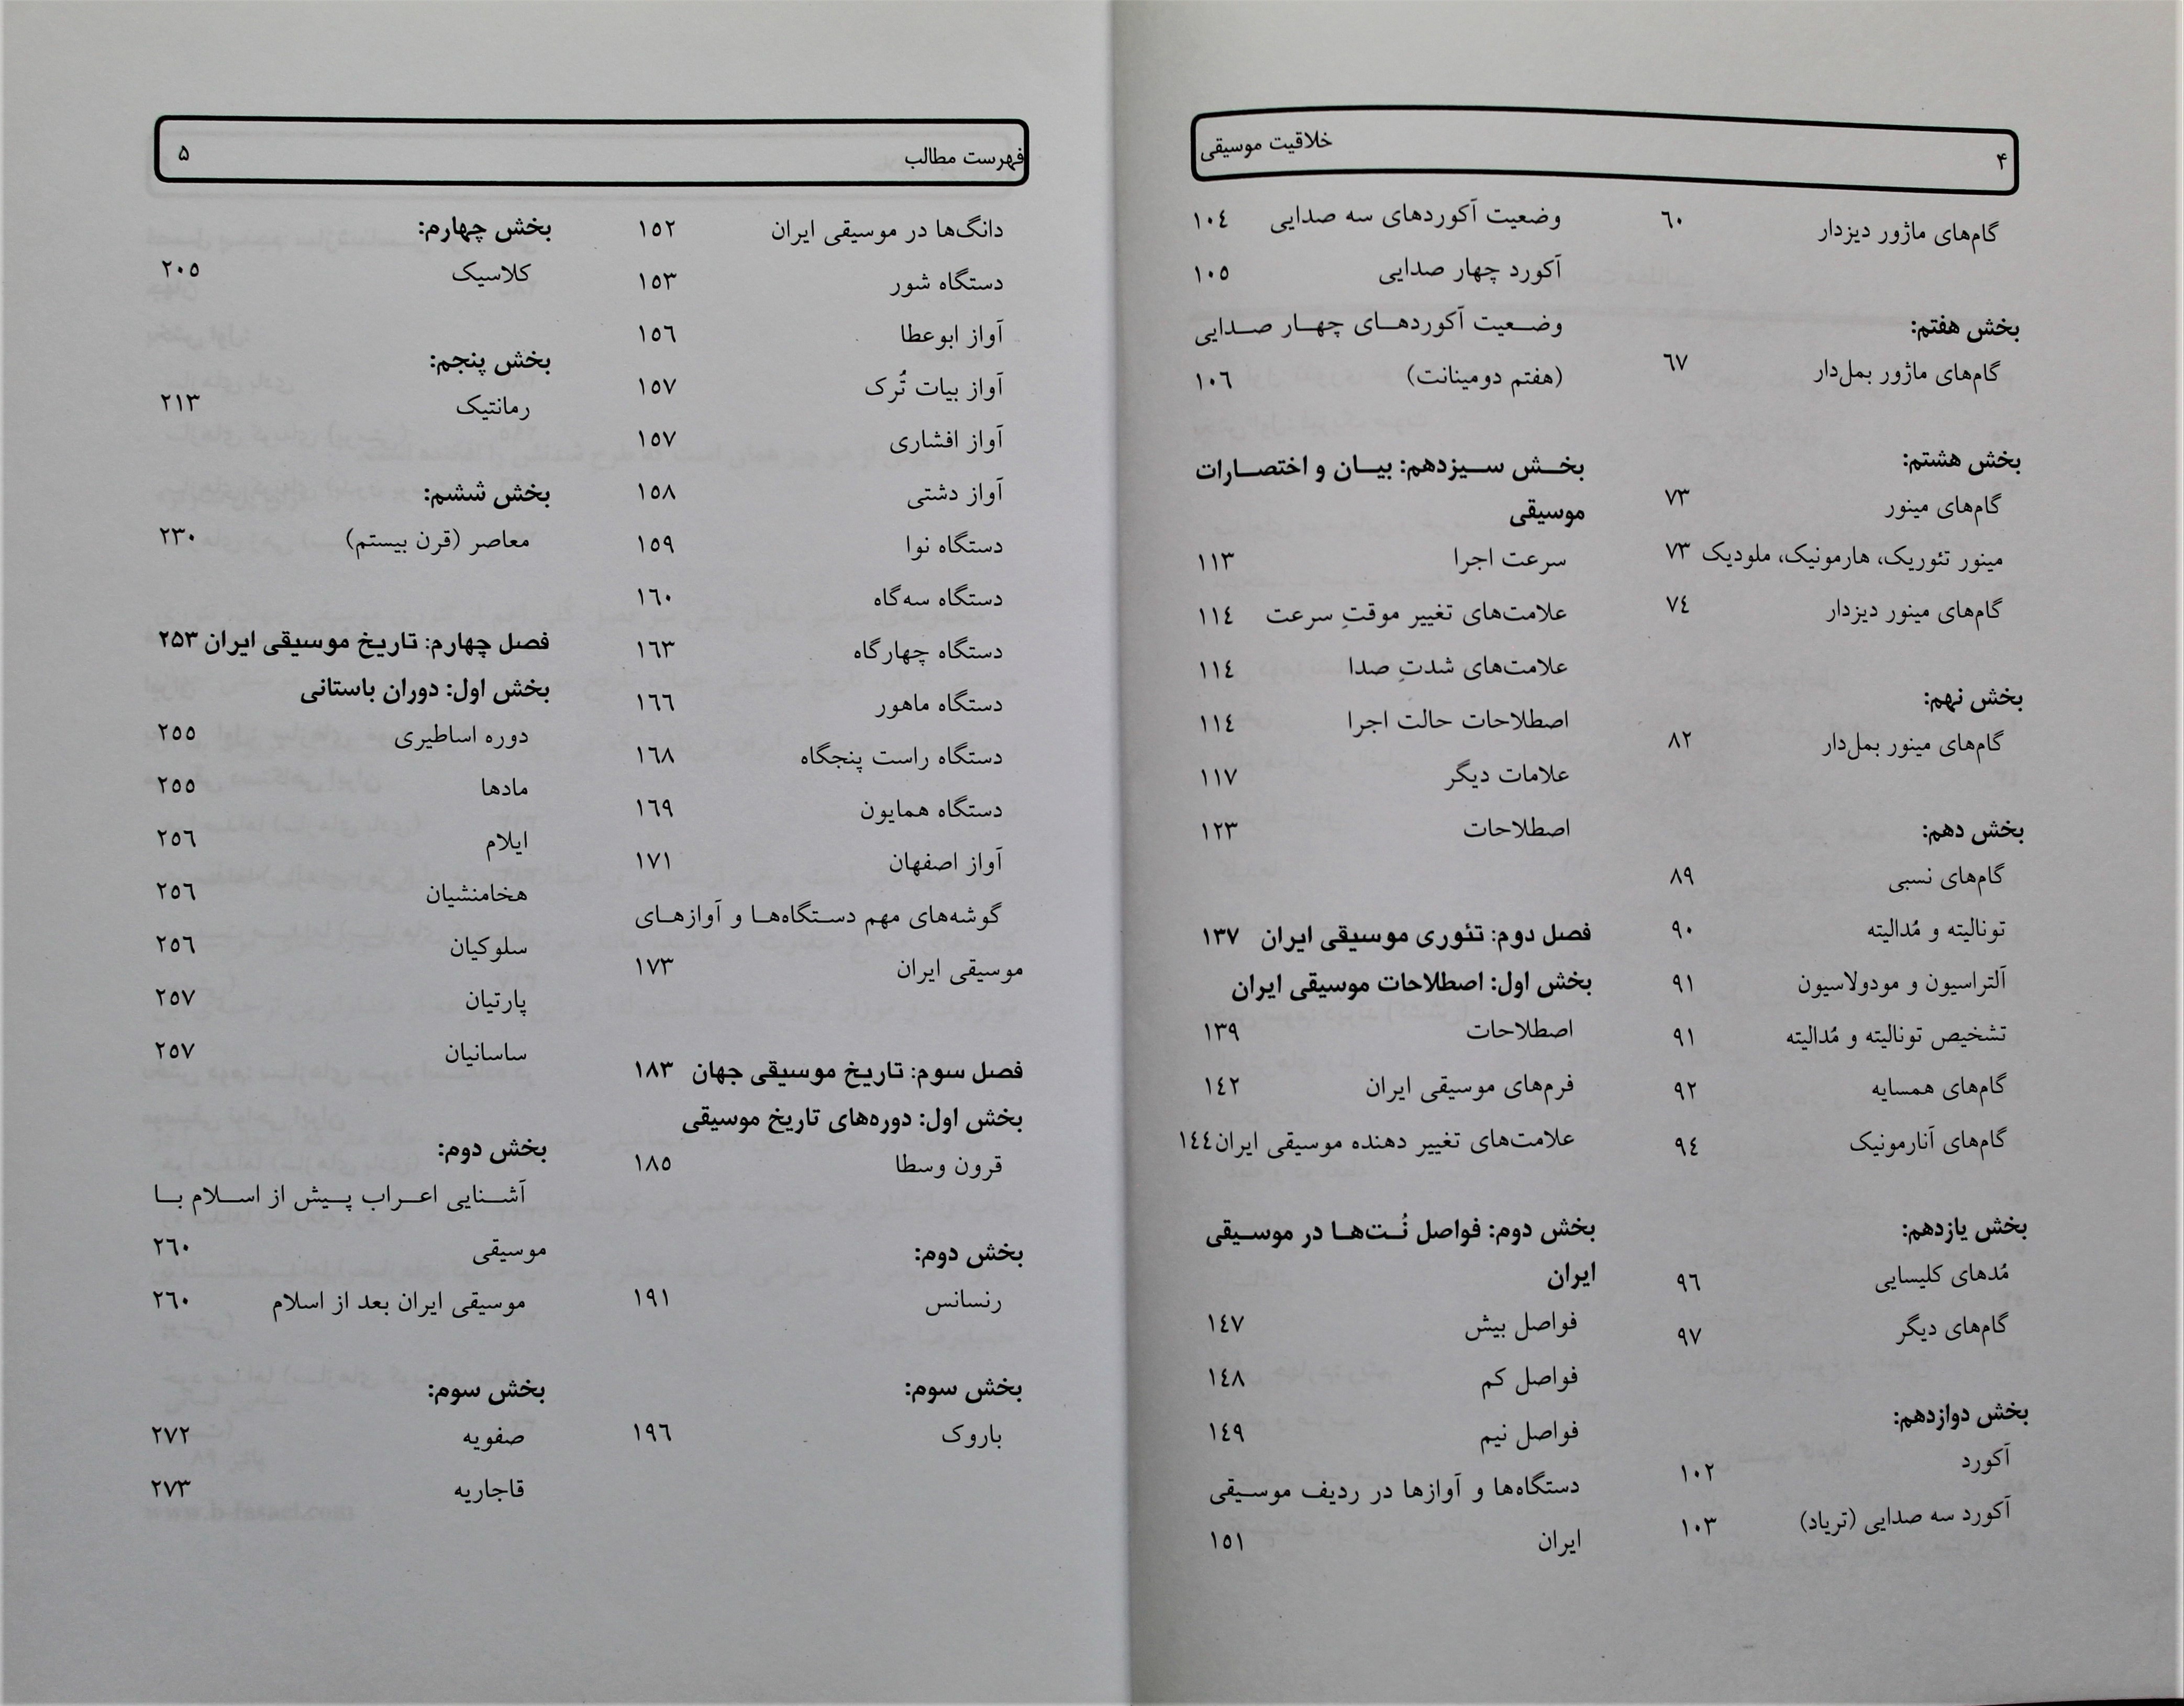 ۴
خلاقیت موسیقی
گام‌های ماژور دیزدار ٦٠
بخش هفتم:
گام‌های ماژور بمل‌دار ٦٧
بخش هشتم:
گام‌های مینور ٧٣
مینور تئوریک، هارمونیک، ملودیک ٧٣
گام‌های مینور دیزدار ٧٤
بخش نهم:
گام‌های مینور بمل‌دار ٨٢
بخش دهم:
گام‌های نسبی ٨٩
تونالیته و مُدالیته ٩٠
آلتراسیون و مودولاسیون ٩١
تشخیص تونالیته و مُدالیته ٩١
گام‌های همسایه ٩٢
گام‌های آنارمونیک ٩٤
بخش یازدهم:
مُدهای کلیسایی ٩٦
گام‌های دیگر ٩٧
بخش دوازدهم:
آکورد ١٠٢
آکورد سه صدایی (تریاد) ١٠٣
وضعیت آکوردهای سه صدایی ١٠٤
آکورد چهار صدایی ١٠٥
وضعیت آکوردهای چهار صدایی
(هفتم دومینانت) ١٠٦
بخش سیزدهم: بیان و اختصارات
موسیقی
سرعت اجرا ١١٣
علامت‌های تغییر موقتِ سرعت ١١٤
علامت‌های شدتِ صدا ١١٤
اصطلاحات حالت اجرا ١١٤
علامات دیگر ١١٧
اصطلاحات ١٢٣
فصل دوم: تئوری موسیقی ایران ۱۳۷
بخش اول: اصطلاحات موسیقی ایران
اصطلاحات ١٣٩
فرم‌های موسیقی ایران ١٤٢
علامت‌های تغییر دهنده موسیقی ایران١٤٤
بخش دوم: فواصل نُت‌ها در موسیقی
ایران
فواصل بیش ١٤٧
فواصل کم ١٤٨
فواصل نیم ١٤٩
دستگاه‌ها و آوازها در ردیف موسیقی
ایران ١٥١
فهرست مطالب
۵
دانگ‌ها در موسیقی ایران ١٥٢
دستگاه شور ١٥٣
آواز ابوعطا ١٥٦
آواز بیات تُرک ١٥٧
آواز افشاری ١٥٧
آواز دشتی ١٥٨
دستگاه نوا ١٥٩
دستگاه سه‌گاه ١٦٠
دستگاه چهارگاه ١٦٣
دستگاه ماهور ١٦٦
دستگاه راست پنجگاه ١٦٨
دستگاه همایون ١٦٩
آواز اصفهان ١٧١
گوشه‌های مهم دستگاه‌ها و آوازهای
موسیقی ایران ١٧٣
فصل سوم: تاریخ موسیقی جهان ۱۸۳
بخش اول: دوره‌های تاریخ موسیقی
قرون وسطا ١٨٥
بخش دوم:
رنسانس ١٩١
بخش سوم:
باروک ١٩٦
بخش چهارم:
کلاسیک ٢٠٥
بخش پنجم:
رمانتیک ٢١٣
بخش ششم:
معاصر (قرن بیستم) ٢٣٠
فصل چهارم: تاریخ موسیقی ایران ۲۵۳
بخش اول: دوران باستانی
دوره اساطیری ٢٥٥
مادها ٢٥٥
ایلام ٢٥٦
هخامنشیان ٢٥٦
سلوکیان ٢٥٦
پارتیان ٢٥٧
ساسانیان ٢٥٧
بخش دوم:
آشنایی اعراب پیش از اسلام با
موسیقی ٢٦٠
موسیقی ایران بعد از اسلام ٢٦٠
بخش سوم:
صفویه ٢٧٢
قاجاریه ٢٧٣